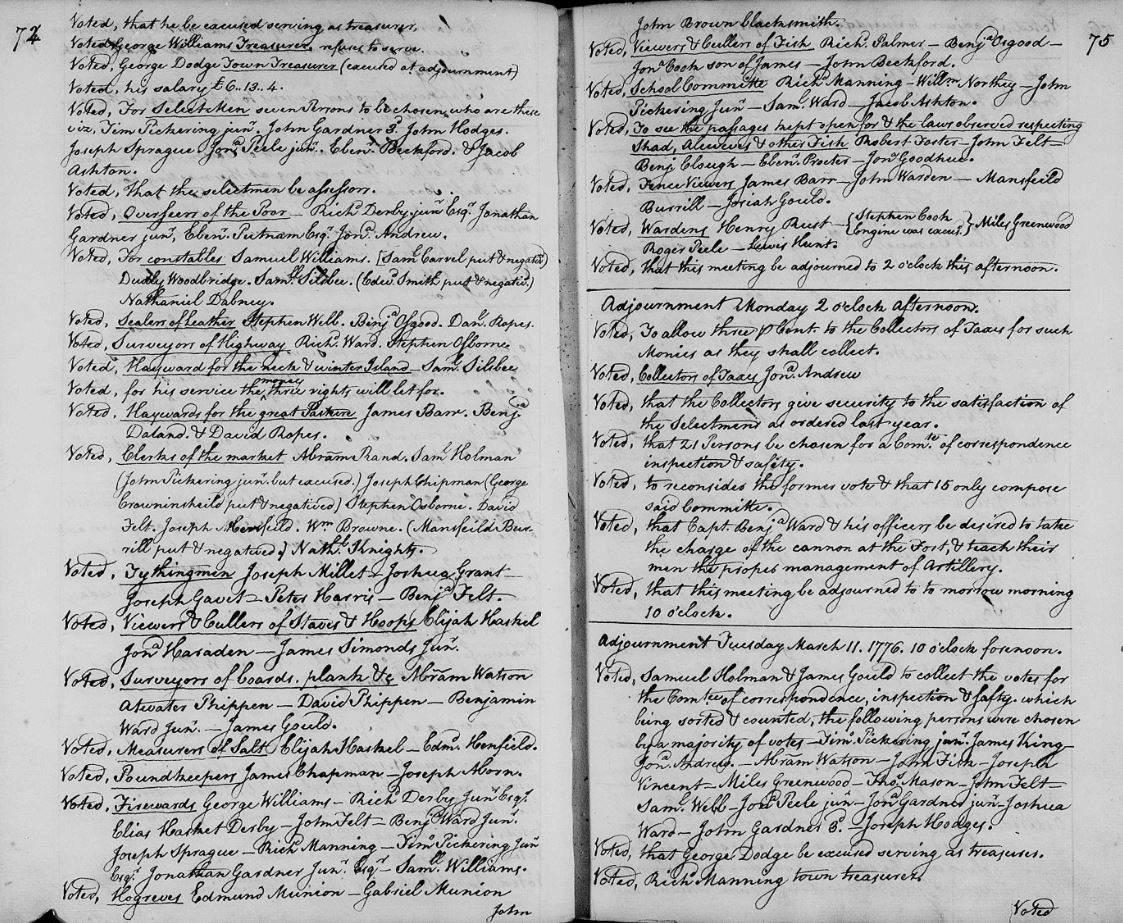 74
Voted, that he be excused serving as treasurer.
Voted George Williams Treasurer refuses to serve.
Voted, George Dodge Town Treasurer (excused at adjournment)
Voted, his salary £6. 13. 4.
Voted, For Selectmen seven Persons to be chosen, who are these
viz, Tim Pickering junr. John Gardner 3d. John Hodges.
Joseph Sprague Jona. Peele junr. Ebenr. Beckford. & Jacob
Ashton.
Voted, that the selectmen be assessors.
Voted, Overseers of the Poor – Richd Derby junr Esqr. Jonathan
Gardner junr, Ebenr. Putnam Esqr. Jona. Andrew.
Voted, For constables Samuel Williams. (Saml. Carvel put & negativd)
Dudley Woodbridge. Samll. Silsbee. (Edwd. Smith put & negativd.)
Nathaniel Dabney.
Voted, Sealers of Leather Stephen Webb. Benja. Osgood. Danl. Ropes.
Voted, Surveyors of Highway Richd. Ward. Stephen Osborne
Voted, Hayward for the neck & winter Island Saml. Silsbee
Voted, for his service the money three rights will let for.
Voted, Haywards for the great Pasture James Barr. Benja
Daland. & David Ropes.
Voted, Clerks of the market Abram Rand. Saml. Holman
(John Pickering junr. but excused.) Joseph Chipman (George
Crowninsheild put & negatived) Stephen Osborne. David
Felt. Joseph Henfield. Wm Browne. (Mansfeild Bur-
rill put & negatived.) Nathl. Knights.
Voted, Tythingmen Joseph Millet – Joshua Grant –
Joseph Gavet – Peter Harris – Benja Felt.
Voted, Viewers & Cullers of Staves & Hoops Elijah Haskel
Jona Haraden – James Simonds Junr.
Voted, Surveyors of boards, plank &c Abram Watson
Atwater Phippen – David Phippen – Benjamin
Ward Junr. – James Gould.
Voted, Measurers of Salt Elijah Haskel – Edmd. Henfield.
Voted, Poundkeepers James Chapman – Joseph Aborn.
Voted, Firewards George Williams – Richd Derby Junr Esqr.
Elias Hasket Derby – John Felt – Benja Ward Junr.
Joseph Sprague – Richd. Manning – Timo. Pickering Junr
Esqr. Jonathan Gardner Junr. Esqr – Samll. Williams.
Voted, Hogreves Edmund Munion – Gabriel Munion
John
75
John Brown blacksmith.
Voted, Viewers & Cullers of Fish Richd. Palmer – Benja Osgood –
Jona Cook son of James – John Beckford.
Voted, School Committe Richd Manning – Willm Northey – John
Pickering Junr – Saml. Ward – Jacob Ashton.
Voted, To see the passages kept open for & the laws observed respecting
Shad, Alewives & other Fish Robert Foster – John Felt –
Benja Clough – Ebenr. Procter – Jona. Goodhue.
Voted, Fence Viewers James Barr – John Warden – Mansfeild
Burrill – Josiah Gould.
Voted, Wardens Henry Rust – {Stephen Cook
Engine was excusd.} Miles Greenwood
Roger Peele – Lewis Hunt.
Voted, that this meeting be adjourned to 2 o'clock this afternoon.
Adjournment Monday 2 o'clock Afternoon.
Voted, To allow three p Cent. to the Collectors of Taxes for such
Monies as they shall collect.
Voted, Collectors of Taxes Jona. Andrew
Voted, that the Collectors give security to the satisfaction of
the Selectmen as ordered last year.
Voted, that 21 Persons be chosen for a Comte. of correspondence
inspection & safety.
Voted, to reconsider the former vote & that 15 only compose
said Committe.
Voted, that Capt. Benja Ward & his officers be desired to take
the charge of the cannon at the Fort, & teach their
men the proper management of Artillery.
Voted, that this meeting be adjourned to to morrow morning
10 o'clock.
Adjournment Tuesday March 11. 1776. 10 o'clock forenoon.
Voted, Samuel Holman & James Gould to collect the votes for
the Comtee of correspondence, inspection & safty. which
being sorted & counted, the following persons were chosen
by a majority of votes – Timo. Pickering junr. James King –
Jona. Andrew. – Abram Watson – John Fisk – Joseph
Vincent – Miles Greenwood – Thos. Mason – John Felt –
Saml. Webb – Jona. Peele junr – Jona. Gardner junr – Joshua
Ward – John Gardner 3d. – Joseph Hodges.
Voted, that George Dodge be excused serving as treasurer.
Voted, Richd. Manning town treasurer
Voted